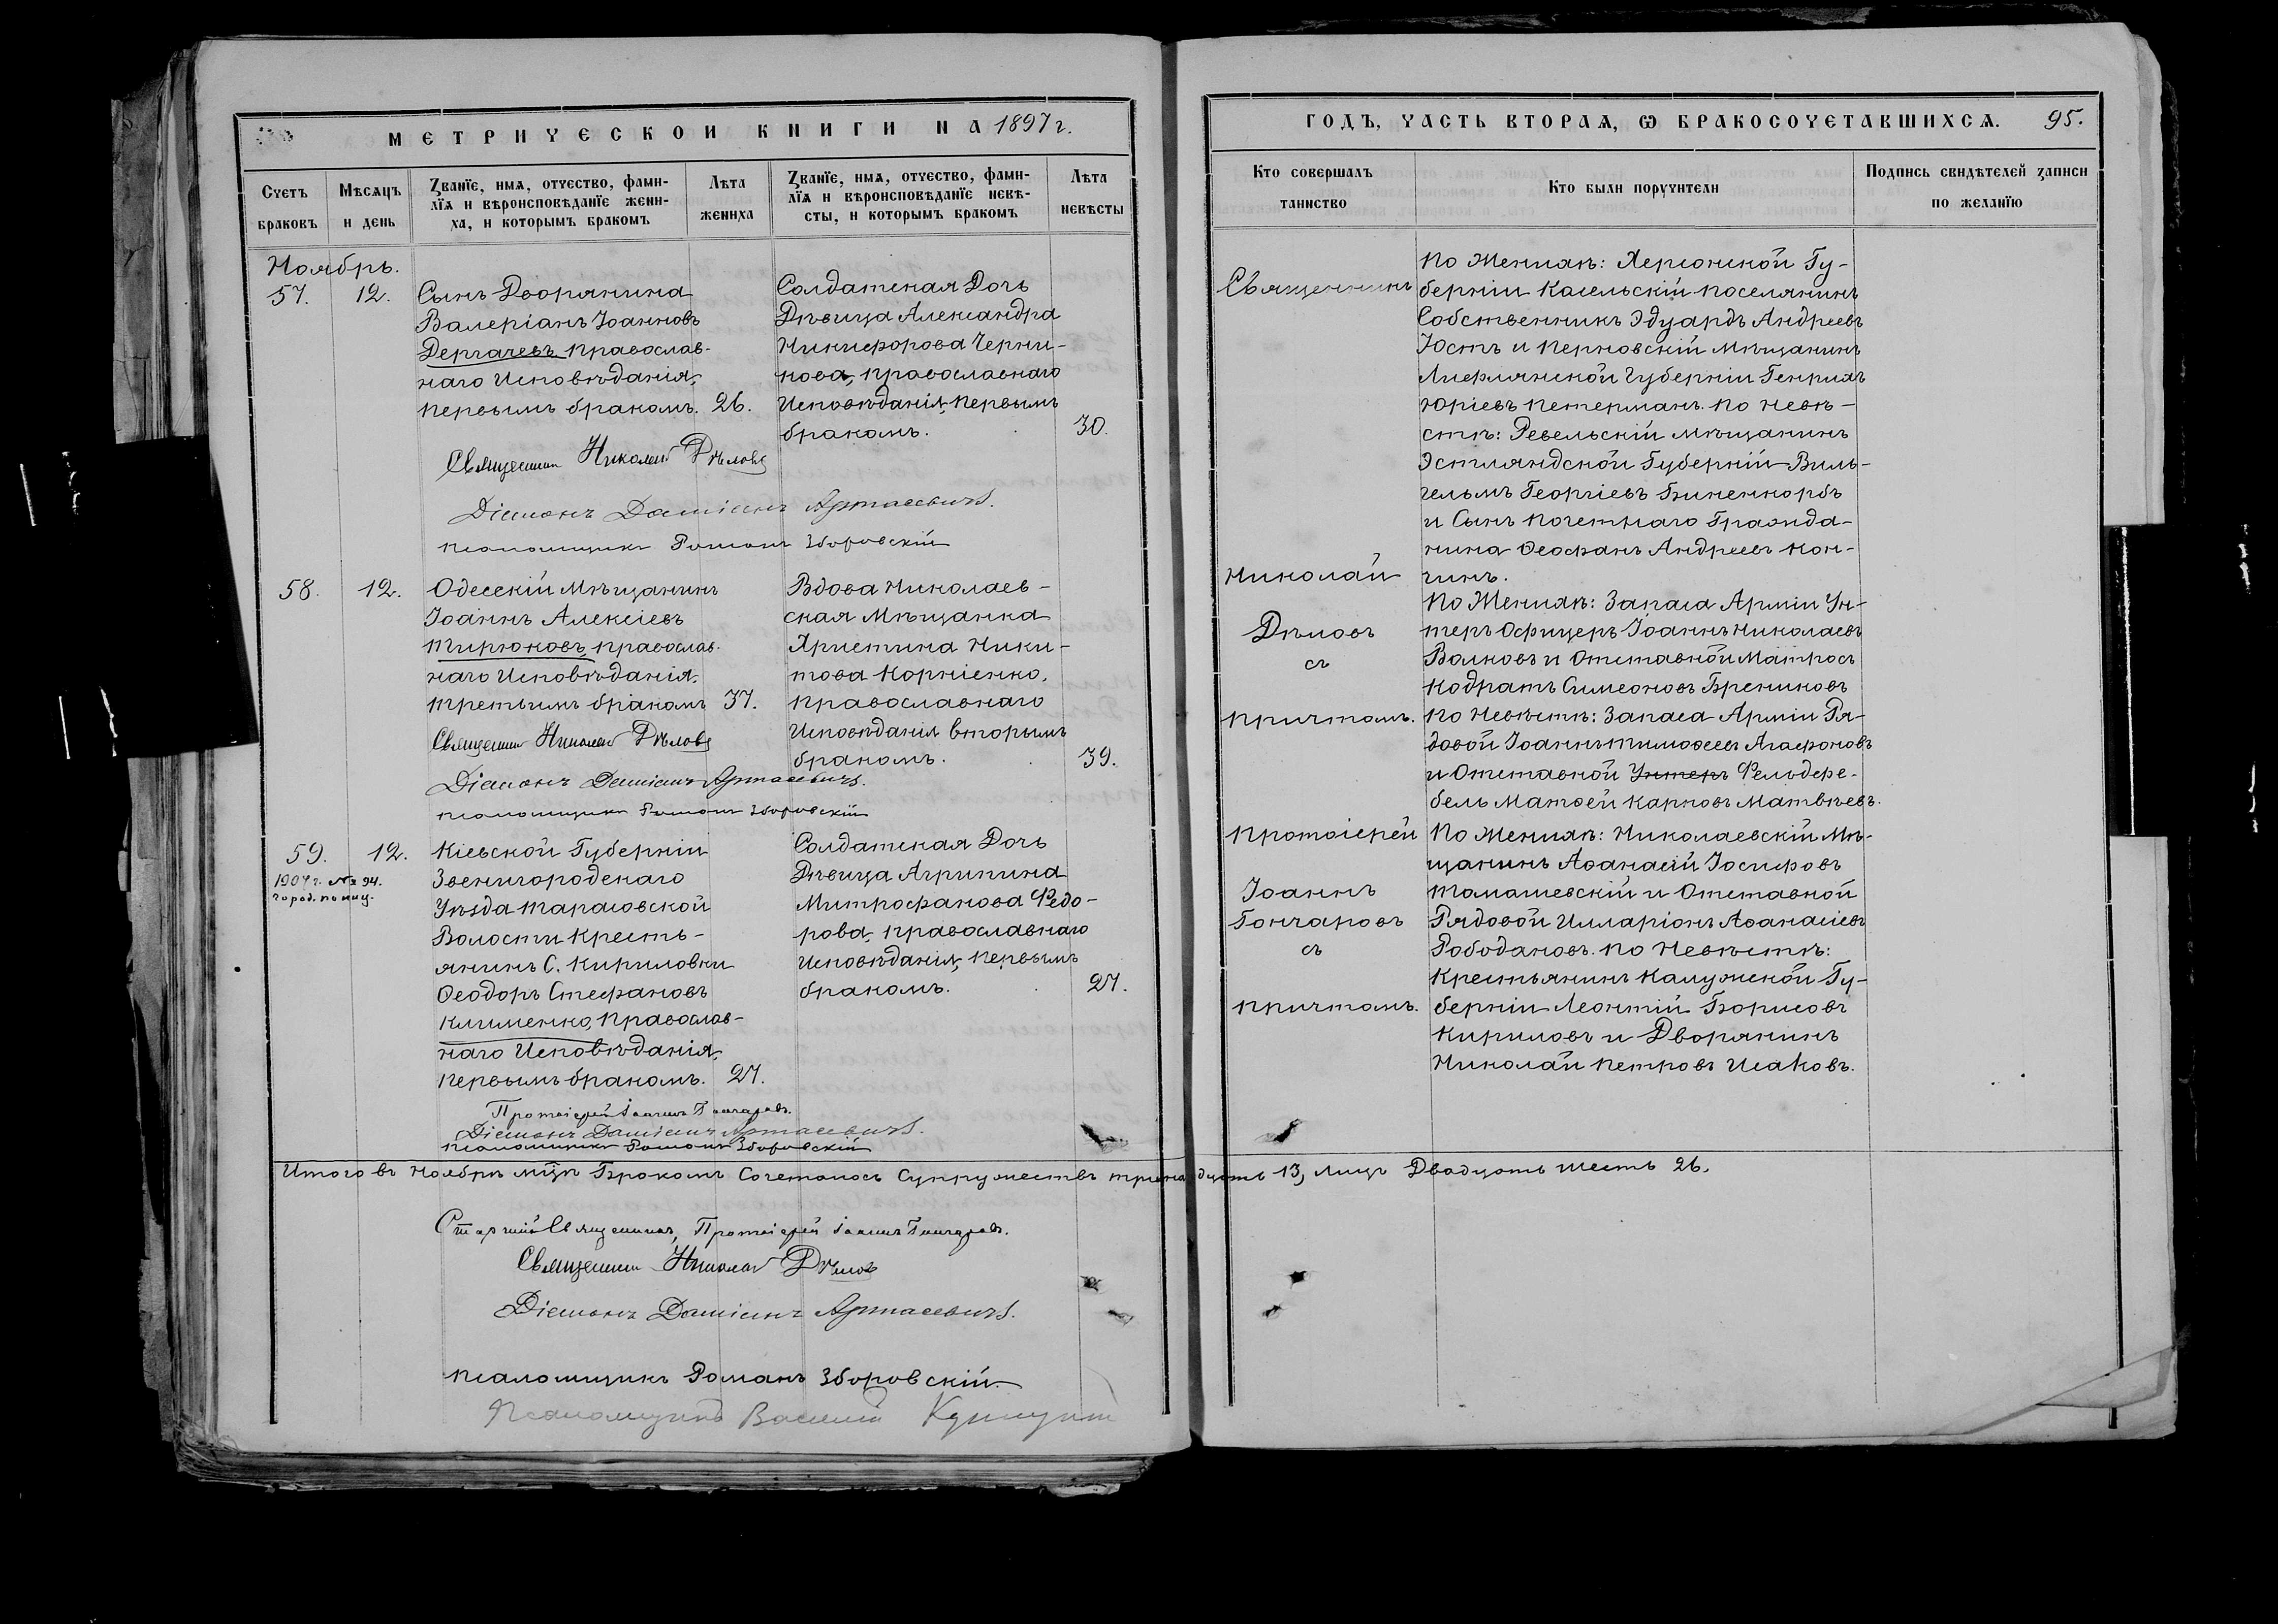 МЕТРИЧЕСКОЙ КНИГИ НА 1897 г.
Счетъ браковъ
Мѣсяцъ и день
Званїе, имѧ, отчество, фами-
лїѧ и вѣроисповѣданїе жени-
ха, и которымъ бракомъ
Лѣта жениха
Званїе, имѧ, отчество, фами-
лїѧ и вѣроисповѣданїе невѣ-
сты, и которымъ бракомъ
Лѣта невѣсты
Ноябрь.
57. 12.
Сынъ Дворянина
Валеріанъ Іоанновъ
Дергачевъ, православ-
наго Исповѣданія,
первымъ бракомъ. 26.
Солдатская Дочь
Дѣвица Александра
Никифорова Черни-
кова, православнаго
Исповѣданія, первымъ
бракомъ. 30.
Священникъ Николай Дѣловъ
Діаконъ Даміанъ Артасевичъ.
псаломщикъ Романъ Зборовскій
58. 12.
Одесскій Мѣщанинъ
Іоаннъ Алексіевъ
Тирюковъ, православ-
наго Исповѣданія,
третьимъ бракомъ 37.
Вдова Николаев-
ская Мѣщанка
Христина Ники-
това Корніенко,
православнаго
Исповѣданія вторымъ
бракомъ. 39.
Священникъ Николай Дѣловъ
Діаконъ Даміанъ Артасевичъ.
псаломщикъ Романъ Зборовскій
59. 12.
1907 г. № 94.
город. полиц.
Кіевской Губерніи
Звенигородскаго
Уѣзда Тарасовской
Волости Кресть-
янинъ С. Кириловки
Ѳеодоръ Стефановъ
Клименко, Православ-
наго Исповѣданія,
первымъ бракомъ. 27.
Солдатская Дочь
Дѣвица Агрипина
Митрофанова Федо-
рова, православнаго
Исповѣданія, первымъ
бракомъ. 27.
Протоіерей Іоаннъ Гончаровъ.
Діаконъ Даміанъ Артасевичъ.
псаломщикъ Романъ Зборовскій
Итого въ Ноябрѣ мцѣ Бракомъ Сочеталось Супружествъ тринадцать 13, лицъ Двадцать шесть 26.
Старшій Священникъ, Протоіерей Іоаннъ Гончаровъ.
Священникъ Николай Дѣловъ
Діаконъ Даміанъ Артасевичъ.
псаломщикъ Романъ Зборовскій.
Псаломщикъ Василій
ГОДЪ, ЧАСТЬ ВТОРАѦ, Ѡ БРАКОСОЧЕТАВШИХСѦ. 95.
Кто совершалъ таинство
Кто были поручители
Подпись свидѣтелей записи
по желанїю
Священникъ
Николай
Дѣловъ
съ
причтомъ.
По Женихѣ: Херсонской Гу-
берніи Кассельскій поселянинъ
Собственникъ Эдуардъ Андреевъ
Юстъ и Перновскій Мѣщанинъ
Лифлянской Губерніи Генрихъ
Юріевъ Петерманъ. По Невѣ-
стѣ: Ревельскій Мѣщанинъ
Эстляндской Губерніи Виль-
гельмъ Георгіевъ Биненкорбъ
и Сынъ Почетнаго Гражда-
нина Ѳеофанъ Андреевъ Кон-
чинъ.
По Женихѣ: Запаса Арміи Ун-
теръ Офицеръ Іоаннъ Николаевъ
Волковъ и Отставной Матросъ
Кодратъ Симеоновъ Брениковъ
По Невѣстѣ: Запаса Арміи Ря-
довой Іоаннъ Тимоѳеевъ Агафоновъ
и Отставной Унтеръ Фельдфе-
бель Матѳей Карповъ Матвѣевъ.
Протоіерей
Іоаннъ
Гончаровъ
съ
причтомъ.
По Женихѣ: Николаевскій Мѣ-
щанинъ Аѳанасій Іосифовъ
Томашевскій и Отставной
Рядовой Илларіонъ Аѳанасіевъ
Рободановъ. По Невѣстѣ:
Крестьянинъ Калужской Гу-
берніи Леонтій Борисовъ
Кириловъ и Дворянинъ
Николай Петровъ Исаковъ.